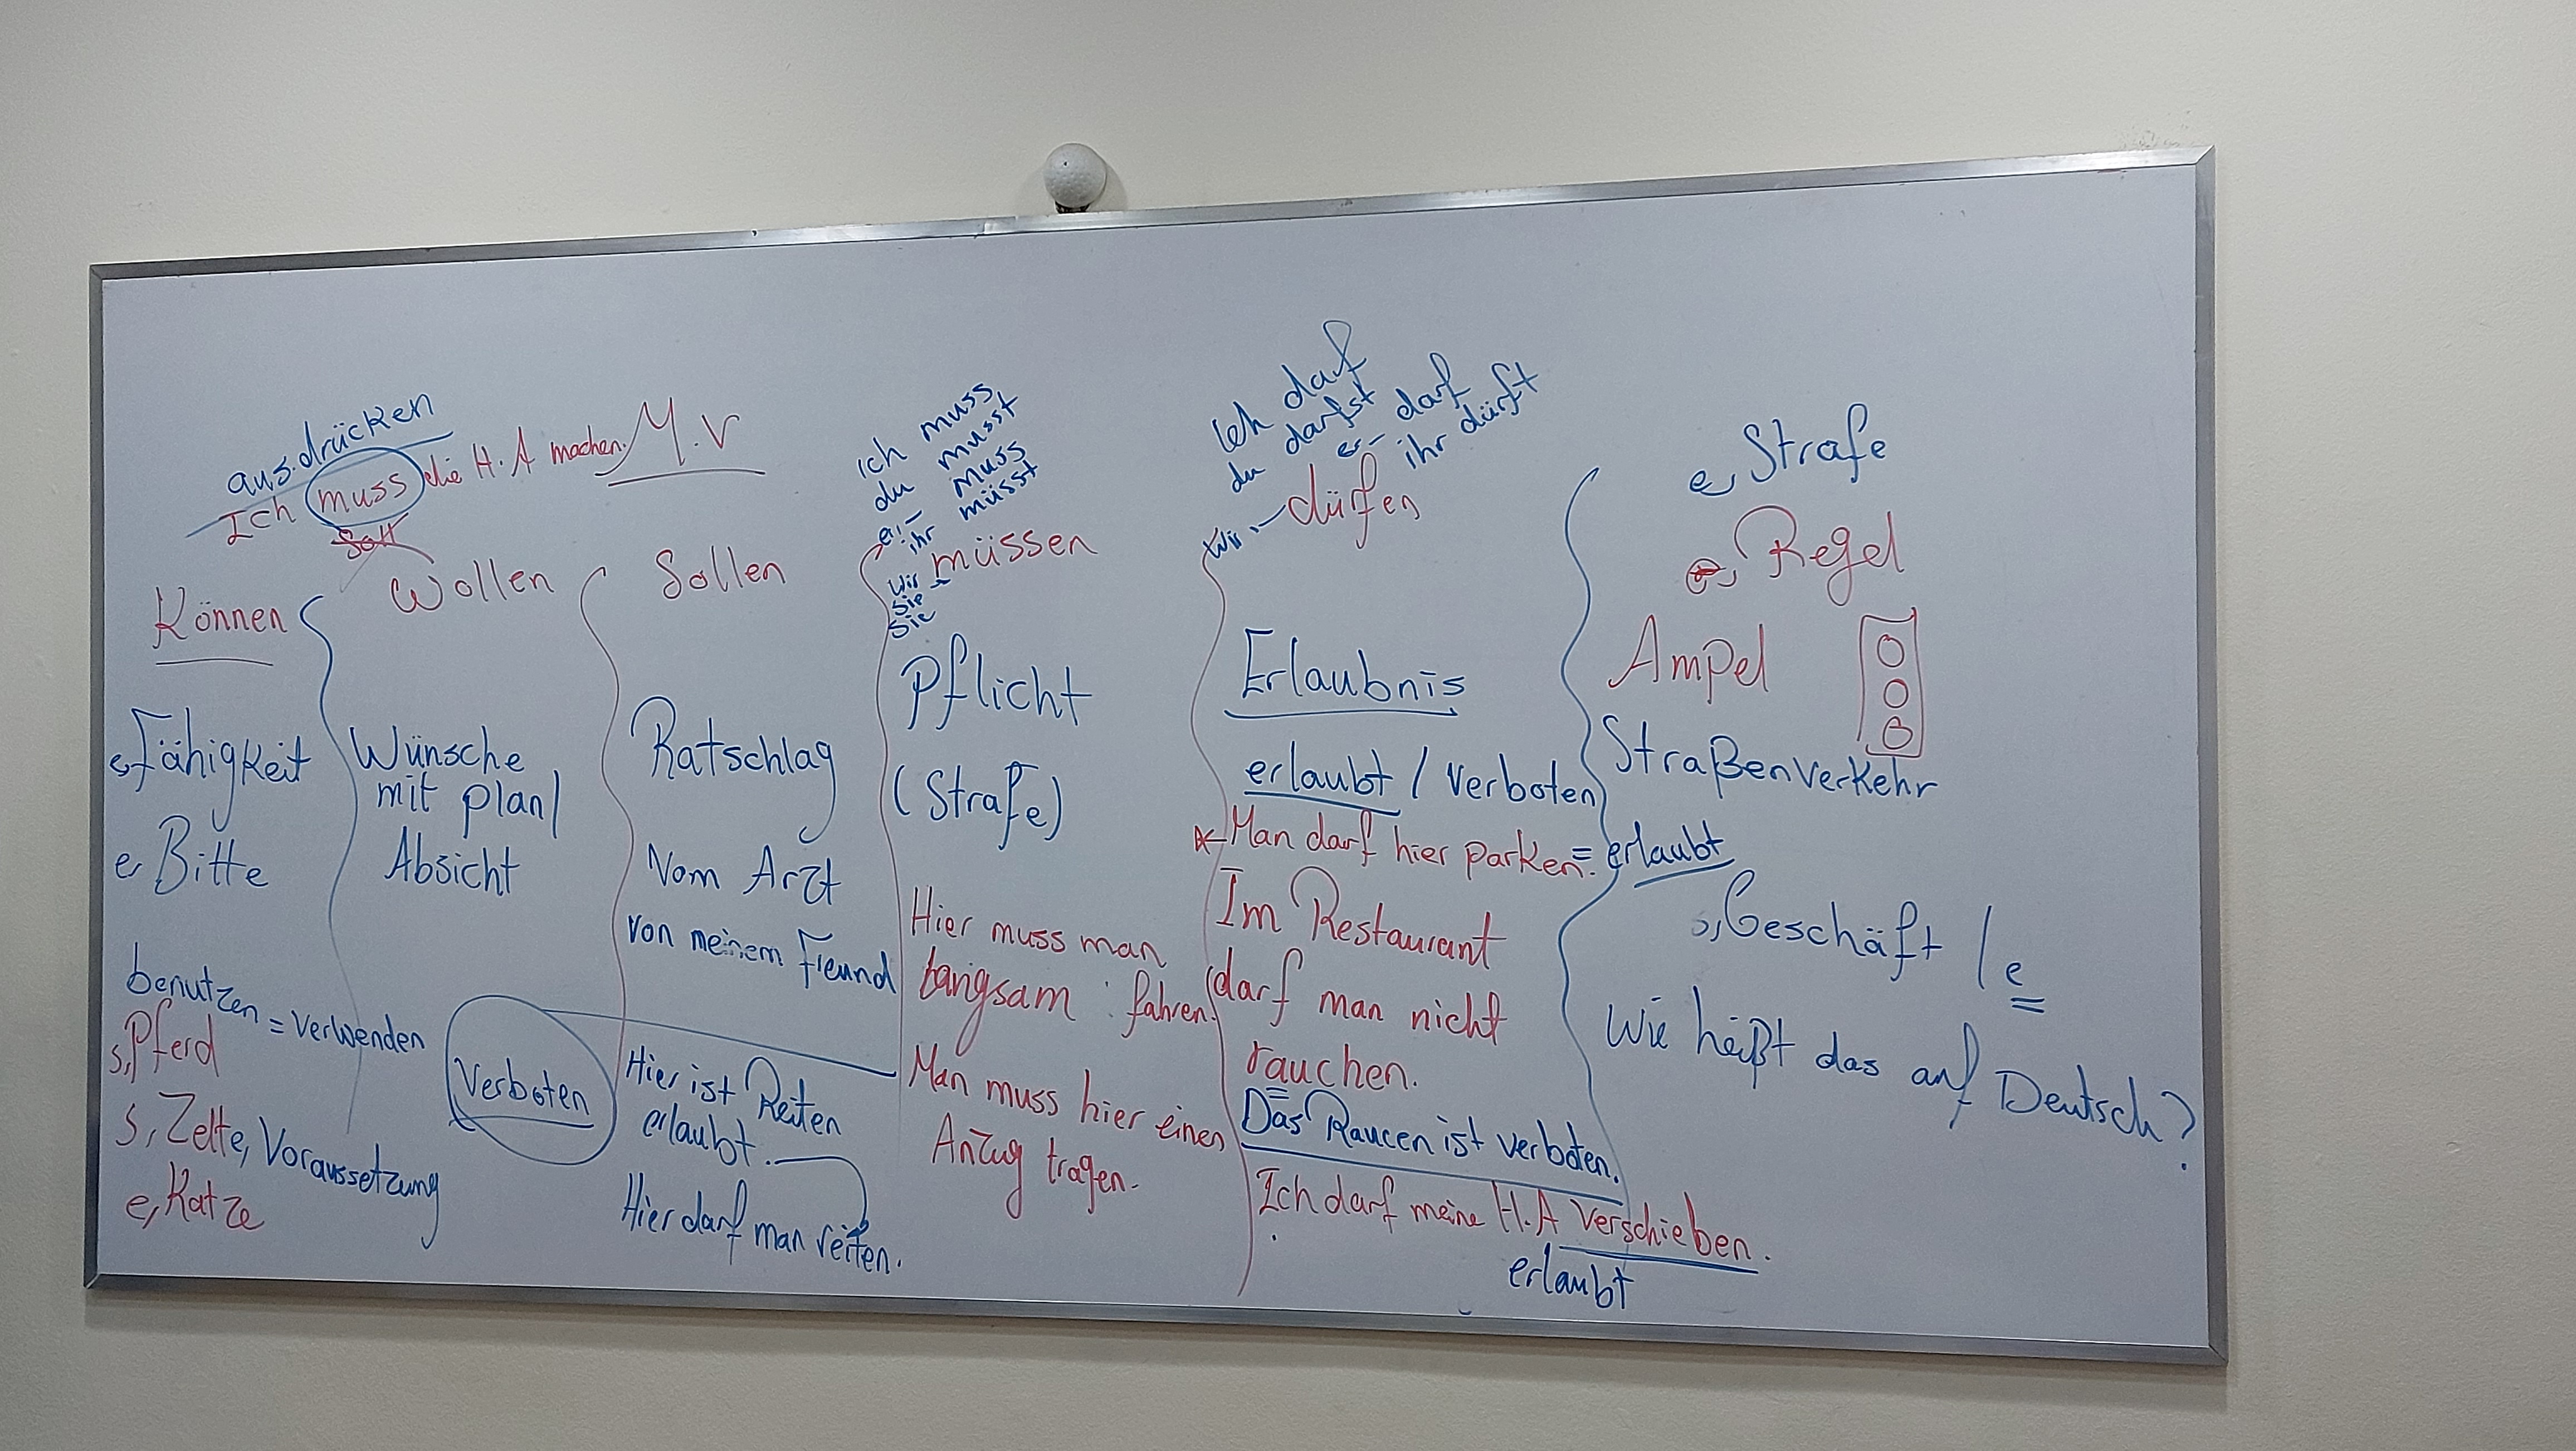 ausdrücken
Ich muss die H.A machen.
soll
M.V
Können
e, Fähigkeit
e, Bitte
benutzen = verwenden
s, Pferd
s, Zelte, Voraussetzung
e, Katze
Wollen
Wünsche
mit plan/
Absicht
Verboten
Sollen
Ratschlag
Vom Arzt
von meinem Freund
Hier ist Reiten
erlaubt.
Hier darf man reiten.
ich muss
du musst
er- muss
ihr müsst
müssen
wir
sie
Sie
Pflicht
(Strafe)
Hier muss man
langsam fahren.
Man muss hier einen
Anzug tragen.
Ich darf
du darfst
er- darf
ihr dürft
wir - dürfen
Erlaubnis
erlaubt / verboten
Man darf hier parken. = erlaubt
Im Restaurant
darf man nicht
rauchen.
=
Das Raucen ist verboten.
Ich darf meine H.A verschieben.
erlaubt
e, Strafe
e, Regel
Ampel
Straßenverkehr
s, Geschäft / e
Wie heißt das auf Deutsch?